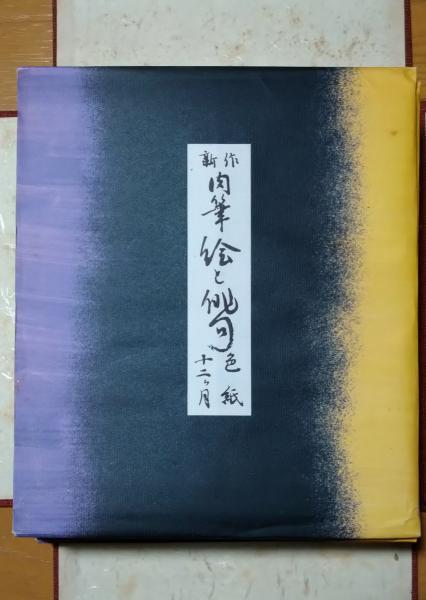 新作
肉筆絵と俳句
色紙
十二ヶ月